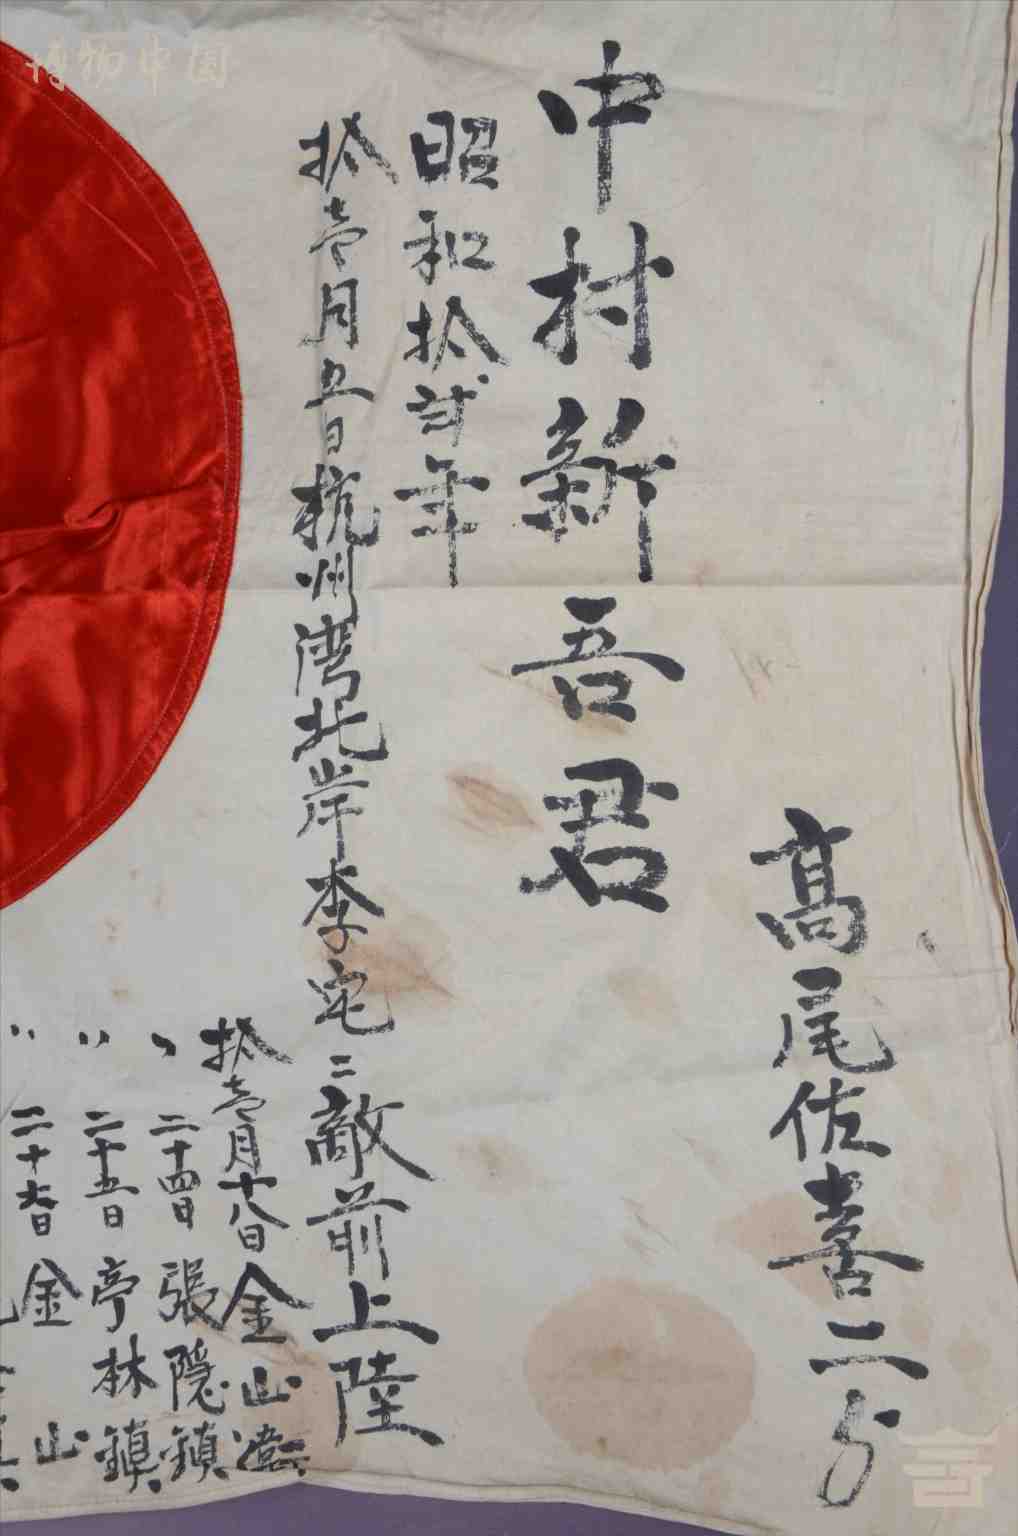 高尾佐喜二ゟ
中村新吾君
昭和拾弐年
拾壱月五日杭州湾北岸李宅ニ敵前上陸
拾壱月十八日金山衛ニ
〃 二十四日張隠鎮
〃 二十五日亭林鎮
〃 二十六日金山
博物中国